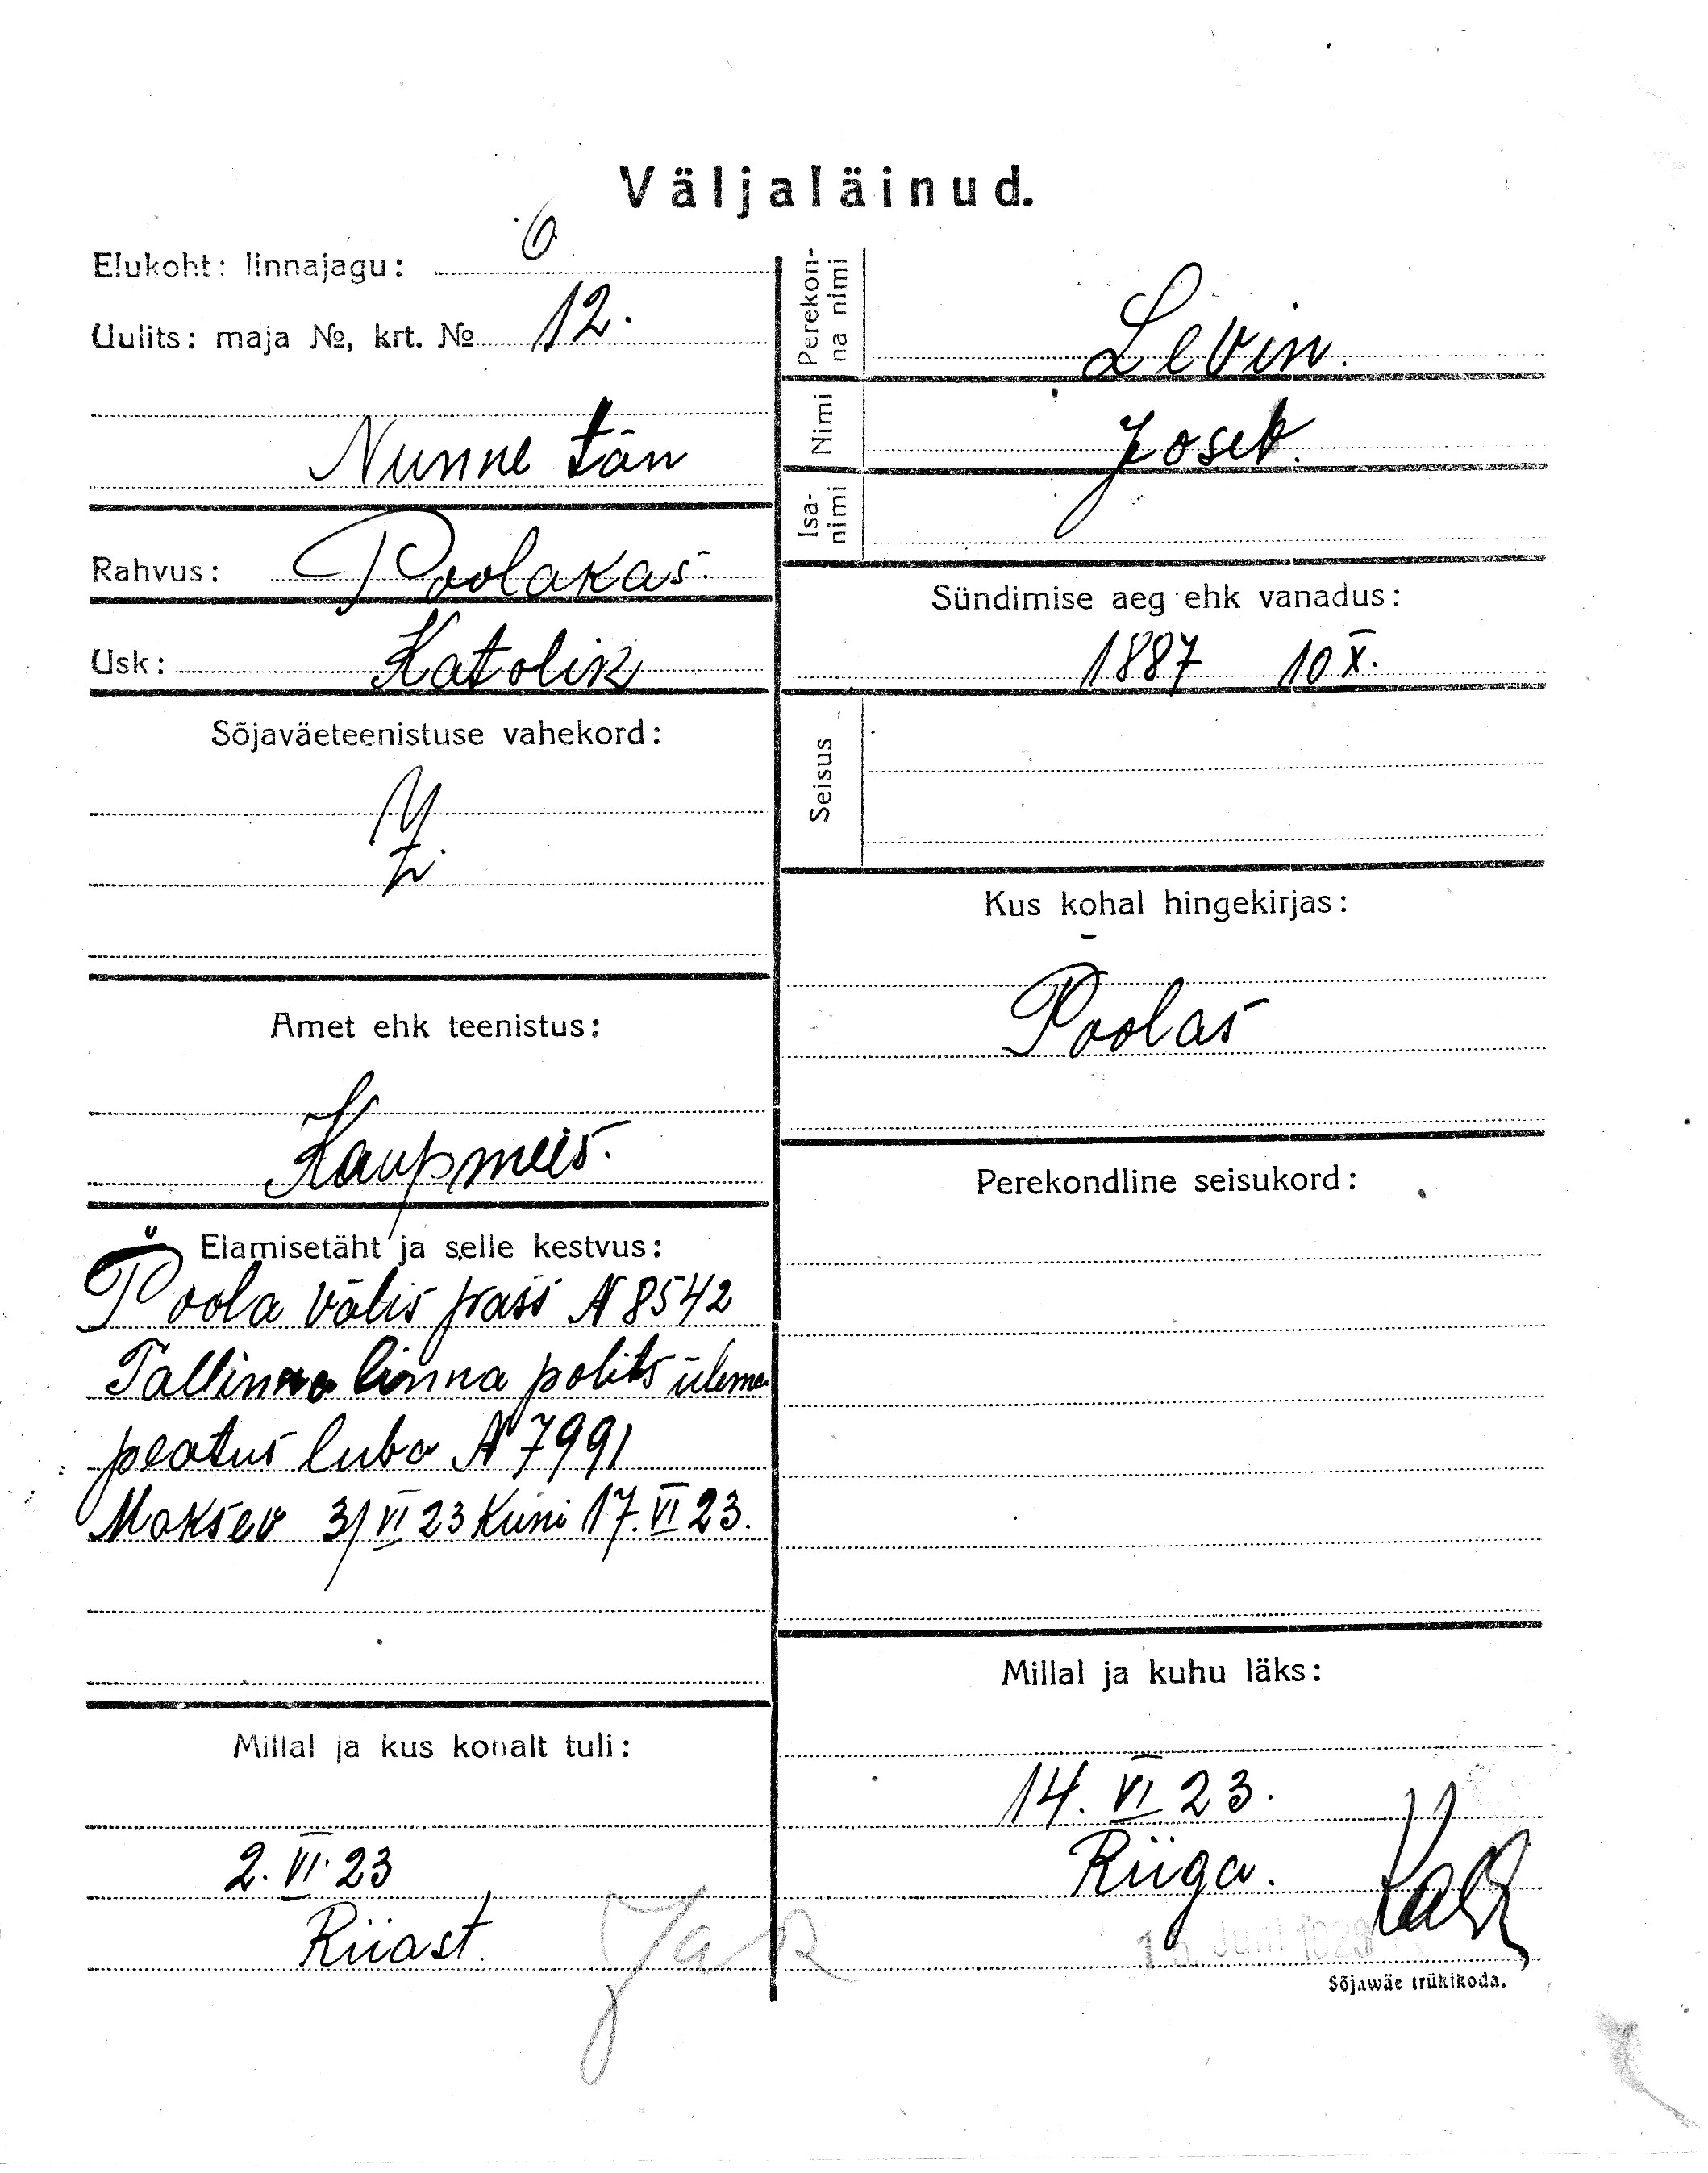 Väljaläinud.
Elukoht: linnajagu: 6
Uulits: maja №, krt. № 12.
Nunne tän
Rahvus: Poolakas.
Usk: Katolik
Sõjaväeteenistuse vahekord:
Amet ehk teenistus:
Kaupmees.
Elamisetäht ja selle kestvus:
Poola välis pass N 8542
Tallinna linna polits ülema
peatus luba N 7991
Maksev 3/VI 23 Kuni 17. VI 23.
Millal ja kus kohalt tuli:
2. VI. 23
Riiast.
Perekonna nimi
Levin.
Nimi
Josek.
Isanimi
Sündimise aeg ehk vanadus:
1887 10 X.
Seisus
Kus kohal hingekirjas:
Poolas
Perekondline seisukord:
Millal ja kuhu läks:
14. VI 23.
Riiga.
15. Juni 1923
Sõjawäe trükikoda.